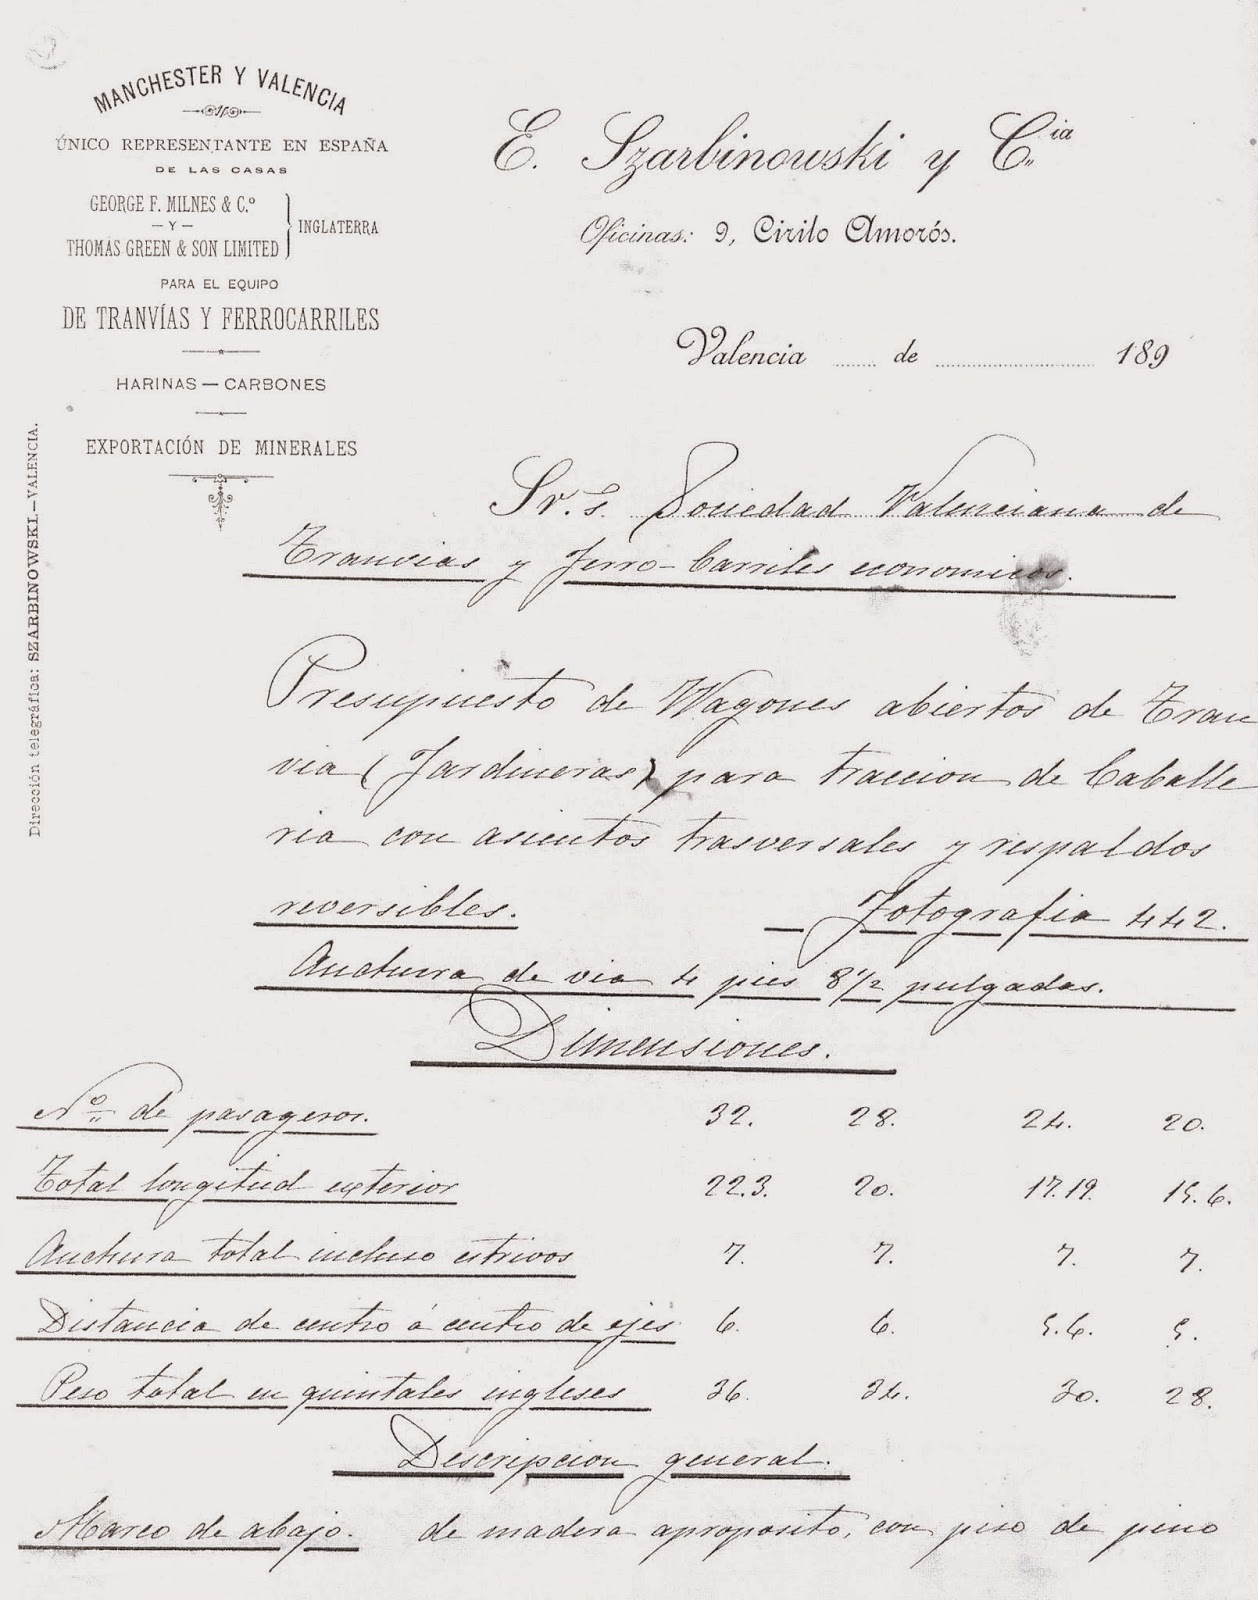 MANCHESTER Y VALENCIA
ÚNICO REPRESENTANTE EN ESPAÑA
DE LAS CASAS
GEORGE F. MILNES & C.º
— Y —
THOMAS GREEN & SON LIMITED
INGLATERRA
PARA EL EQUIPO
DE TRANVÍAS Y FERROCARRILES
HARINAS — CARBONES
EXPORTACIÓN DE MINERALES
Dirección telegráfica: SZARBINOWSKI.—VALENCIA.
E. Szarbinowski y C.ia
Oficinas: 9, Cirilo Amorós.
Valencia ...... de .......................... 189
Sr.s. Sociedad Valenciana de
Tranvias y Ferro-Carriles economicos.
Presupuesto de Wagones abiertos de Tran
via (Jardineras) para traccion de Caballe
ria con asientos trasversales y respaldos
reversibles. Fotografia 442.
Anchura de via 4 pies 8 1/2 pulgadas.
Dimensiones.
Nº de pasageros. 32. 28. 24. 20.
Total longitud exterior 22.3. 20. 17.19. 15.6.
Anchura total incluso estrivos 7. 7. 7. 7.
Distancia de centro á centro de ejes 6. 6. 5.6. 5.
Peso total en quintales ingleses 36. 34. 30. 28.
Descripcion general.
Marco de abajo. de madera aproposito, con piso de pino